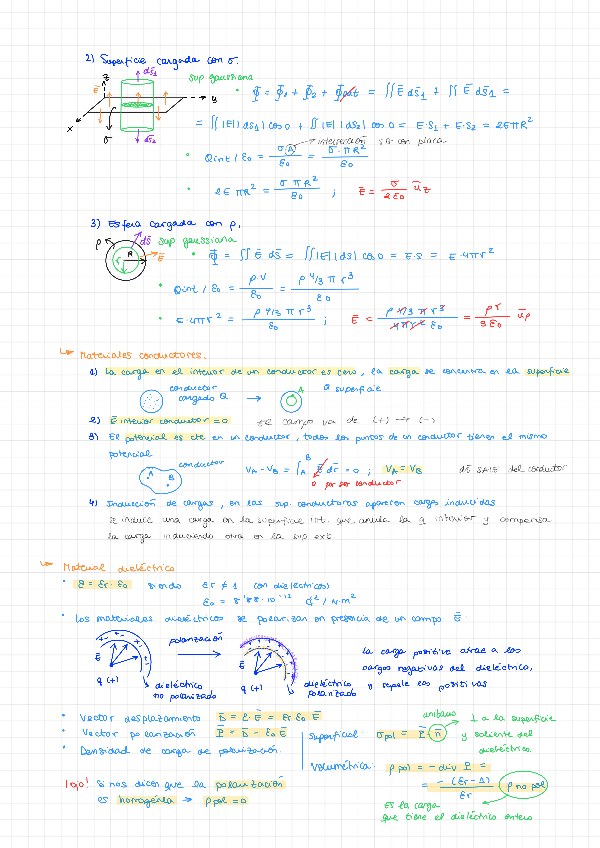 2) Superficie cargada con σ.
z dS̄1 E̅ y x σ dS̄2
sup gaussiana
• Φ = Φ1 + Φ2 + Φlat = ∬ E̅ dS̄1 + ∬ E̅ dS̄1 =
= ∬ |E| |dS1| cos 0 + ∬ |E| |dS2| cos 0 = E·S1 + E·S2 = 2EπR²
• Qint / ε0 = σ·A / ε0 = σ·πR² / ε0 → intersección SG con placa
• 2EπR² = σπR² / ε0 ; E̅ = σ / 2ε0 u̅z
3) Esfera cargada con ρ.
ρ dS̄ R r E̅
sup gaussiana
• Φ = ∬ E̅ dS̄ = ∬ |E| |dS| cos 0 = E·S = E·4πr²
• Qint / ε0 = ρ·V / ε0 = ρ 4/3 π r³ / ε0
• E·4πr² = ρ 4/3 π r³ / ε0 ; E̅ = ρ 4/3 π r³ / 4πr² ε0 = ρr / 3ε0 u̅ρ
↳ Materiales conductores.
1) La carga en el interior de un conductor es cero, la carga se concentra en la superficie
conductor cargado Q → Q superficie
2) E̅ interior conductor = 0 el campo va de (+) → (-)
3) El potencial es cte en un conductor, todos los puntos de un conductor tienen el mismo
potencial
A B conductor
VA - VB = ∫A^B E̅ dr̄ = 0 ; VA = VB
0 por ser conductor
SALE del conductor
4) Inducción de cargas, en las sup. conductoras aparecen cargas inducidas
se induce una carga en la superficie int. que anula la q interior y compensa
la carga induciendo otra en la sup ext.
↳ Material dieléctrico
• ε = εr · ε0 siendo εr ≠ 1 (con dieléctricos)
ε0 = 8'85·10⁻¹² C²/N·m²
• Los materiales dieléctricos se polarizan en presencia de un campo E̅
E̅ q (+) dieléctrico no polarizado
polarización
E̅ q (+) dieléctrico polarizado
la carga positiva atrae a las
cargas negativas del dieléctrico,
y repele las positivas
• Vector desplazamiento D̅ = ε·E̅ = εr ε0 E̅
• Vector polarización P̅ = D̅ - ε0 E̅
• Densidad de carga de polarización.
superficial: σpol = P̅ · n̅
unitario ⊥ a la superficie
y saliente del
dieléctrico.
volumétrica: ρ pol = - div P̅ =
= -(εr - 1) / εr ρ no pol
Es la carga
que tiene el dieléctrico entero
! Si nos dicen que la polarización
es homogénea → ρ pol = 0